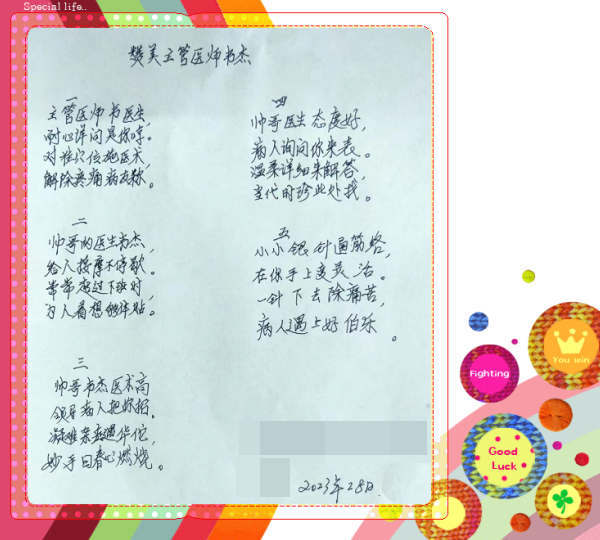 Special life..
赞美主管医师韦杰
一
主管医师韦医生,
耐心详问是你啥。
对准穴位施医术,
解除疼痛病友欢。
二
帅哥的医生韦杰,
给人按摩不停歇。
常常超过下班时,
为人着想够体贴。
三
帅哥韦杰医术高
领导病人把你招。
疑难杂症遇华佗,
妙手回春心燃烧。
四
帅哥医生态度好,
病人询问你来表。
温柔详细来解答,
当代时珍此处找。
五
小小银针通筋络,
在你手上变灵活。
一针下去除痛苦,
病人遇上好伯乐。
2023年28日
Fighting
You win
Good
Luck